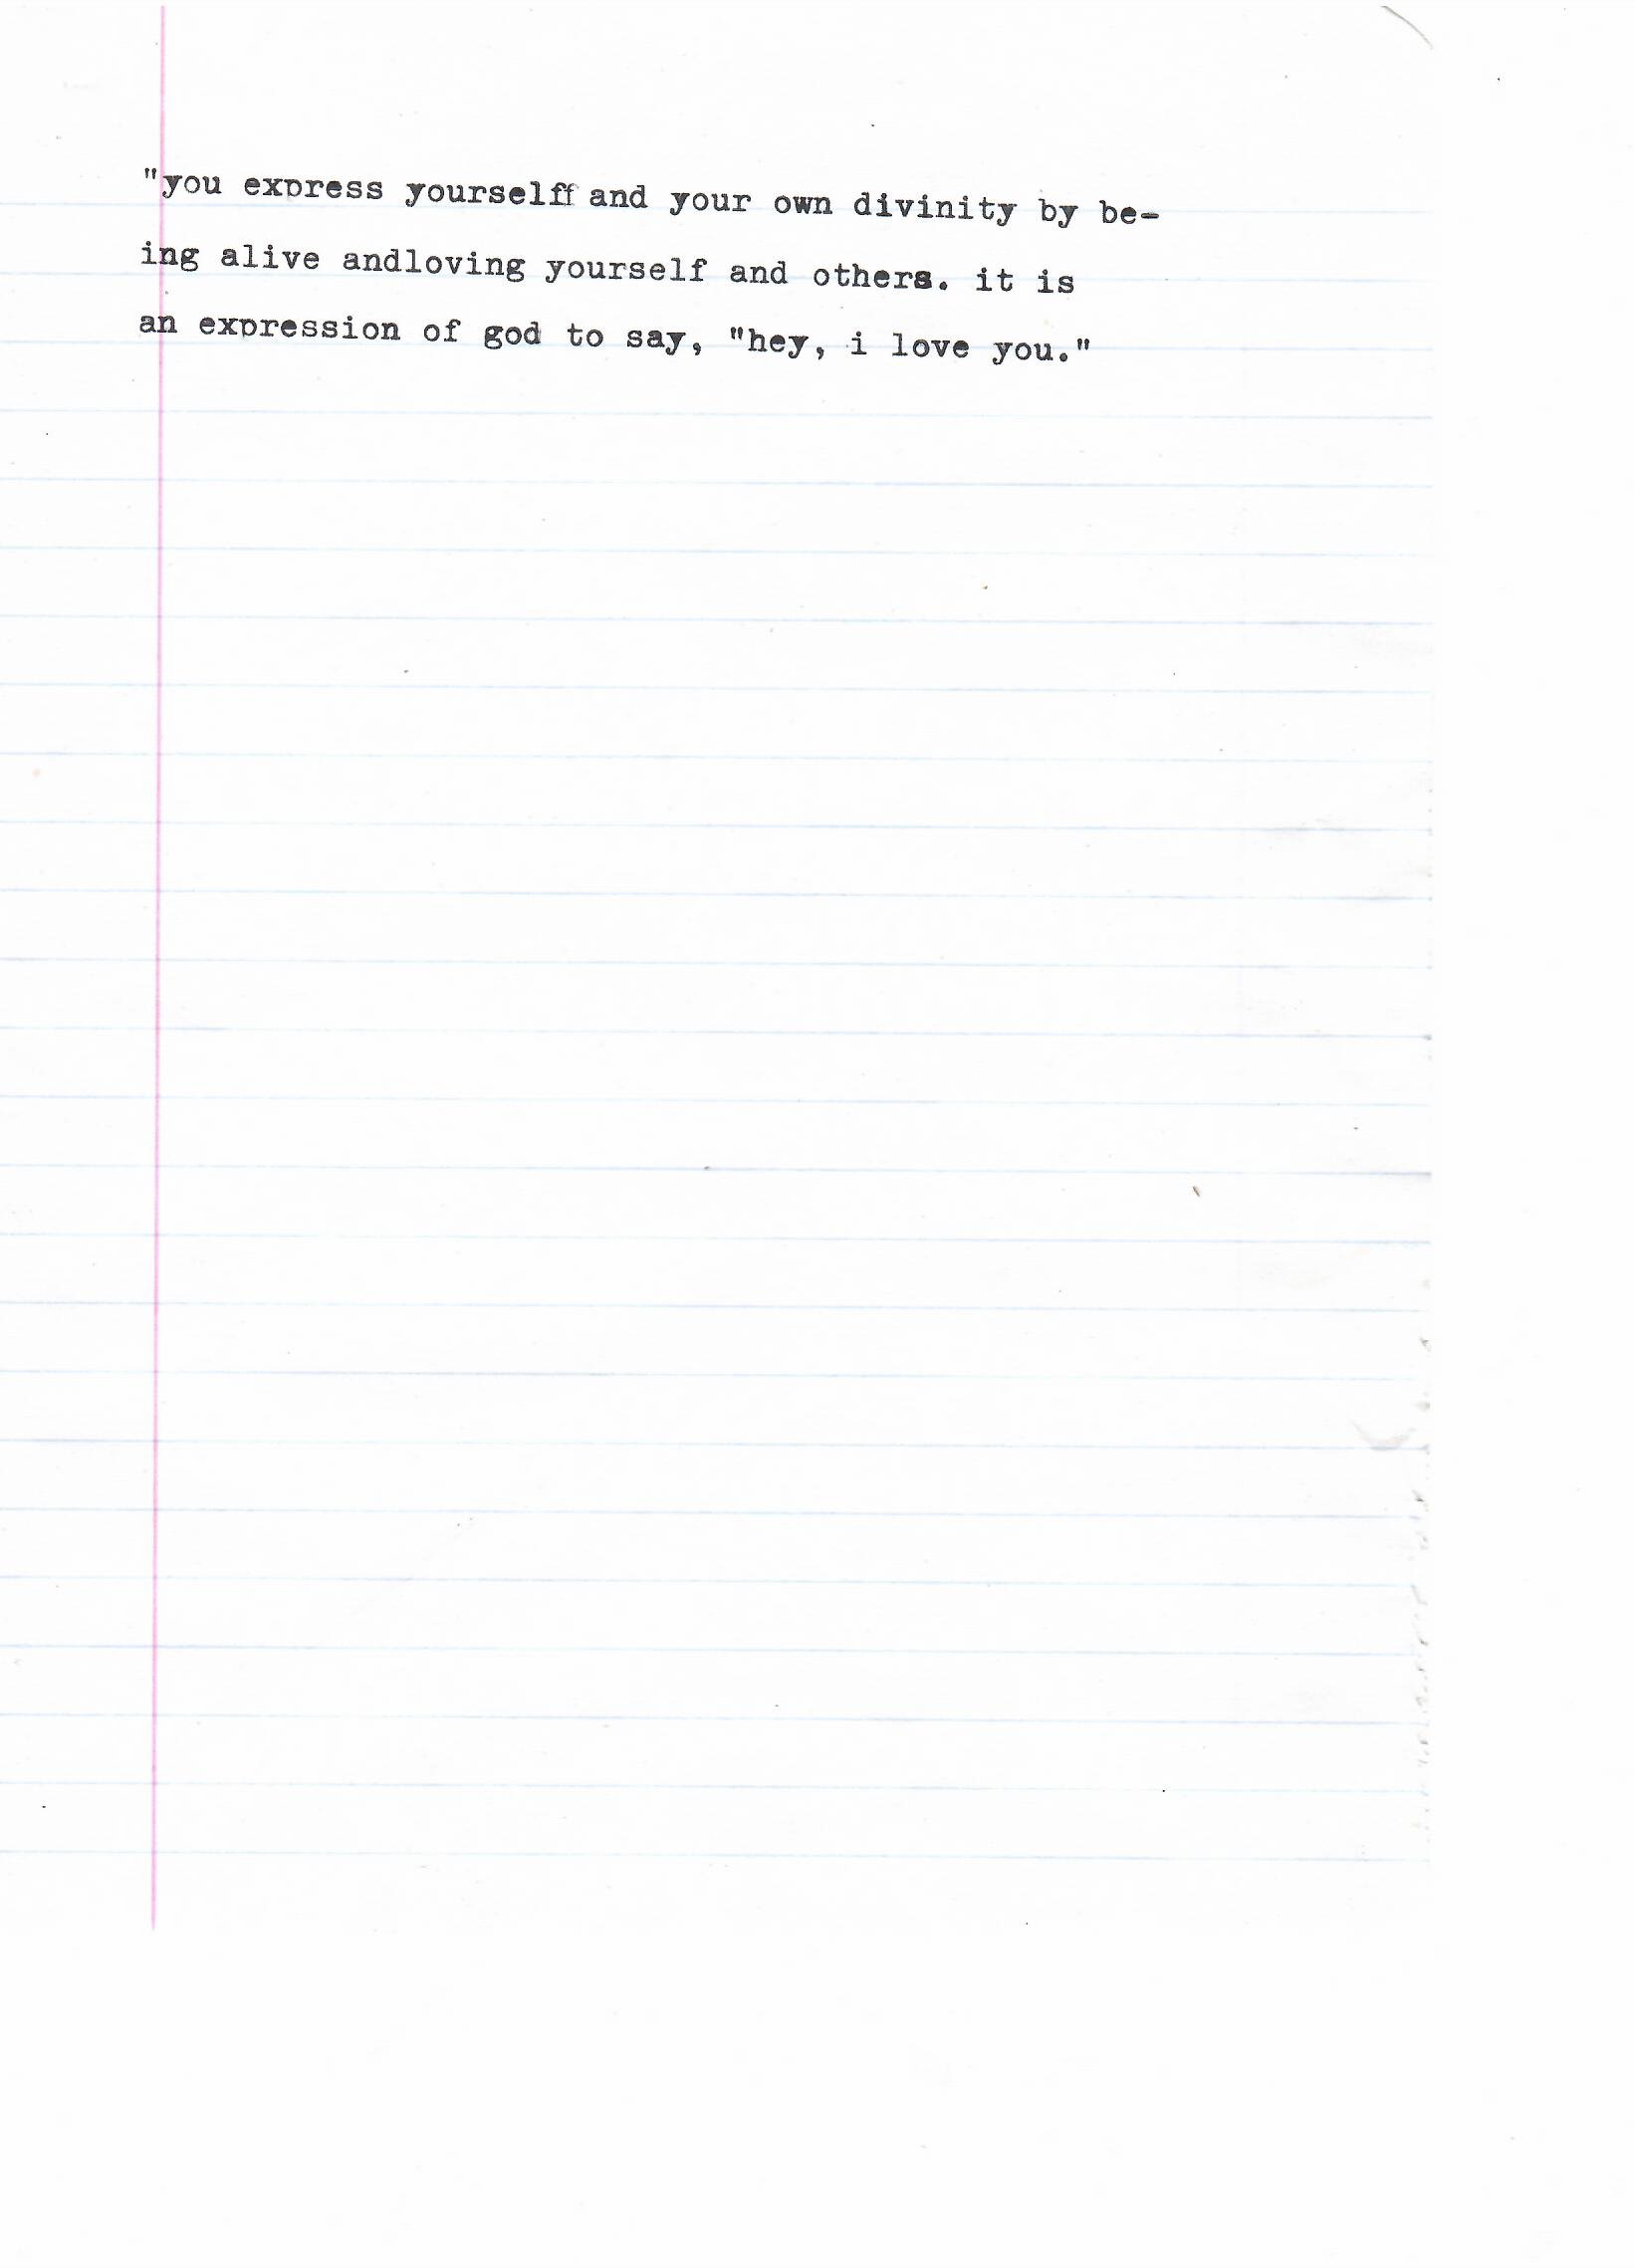 "you express yourselff and your own divinity by be-
ing alive andloving yourself and others. it is
an expression of god to say, "hey, i love you."